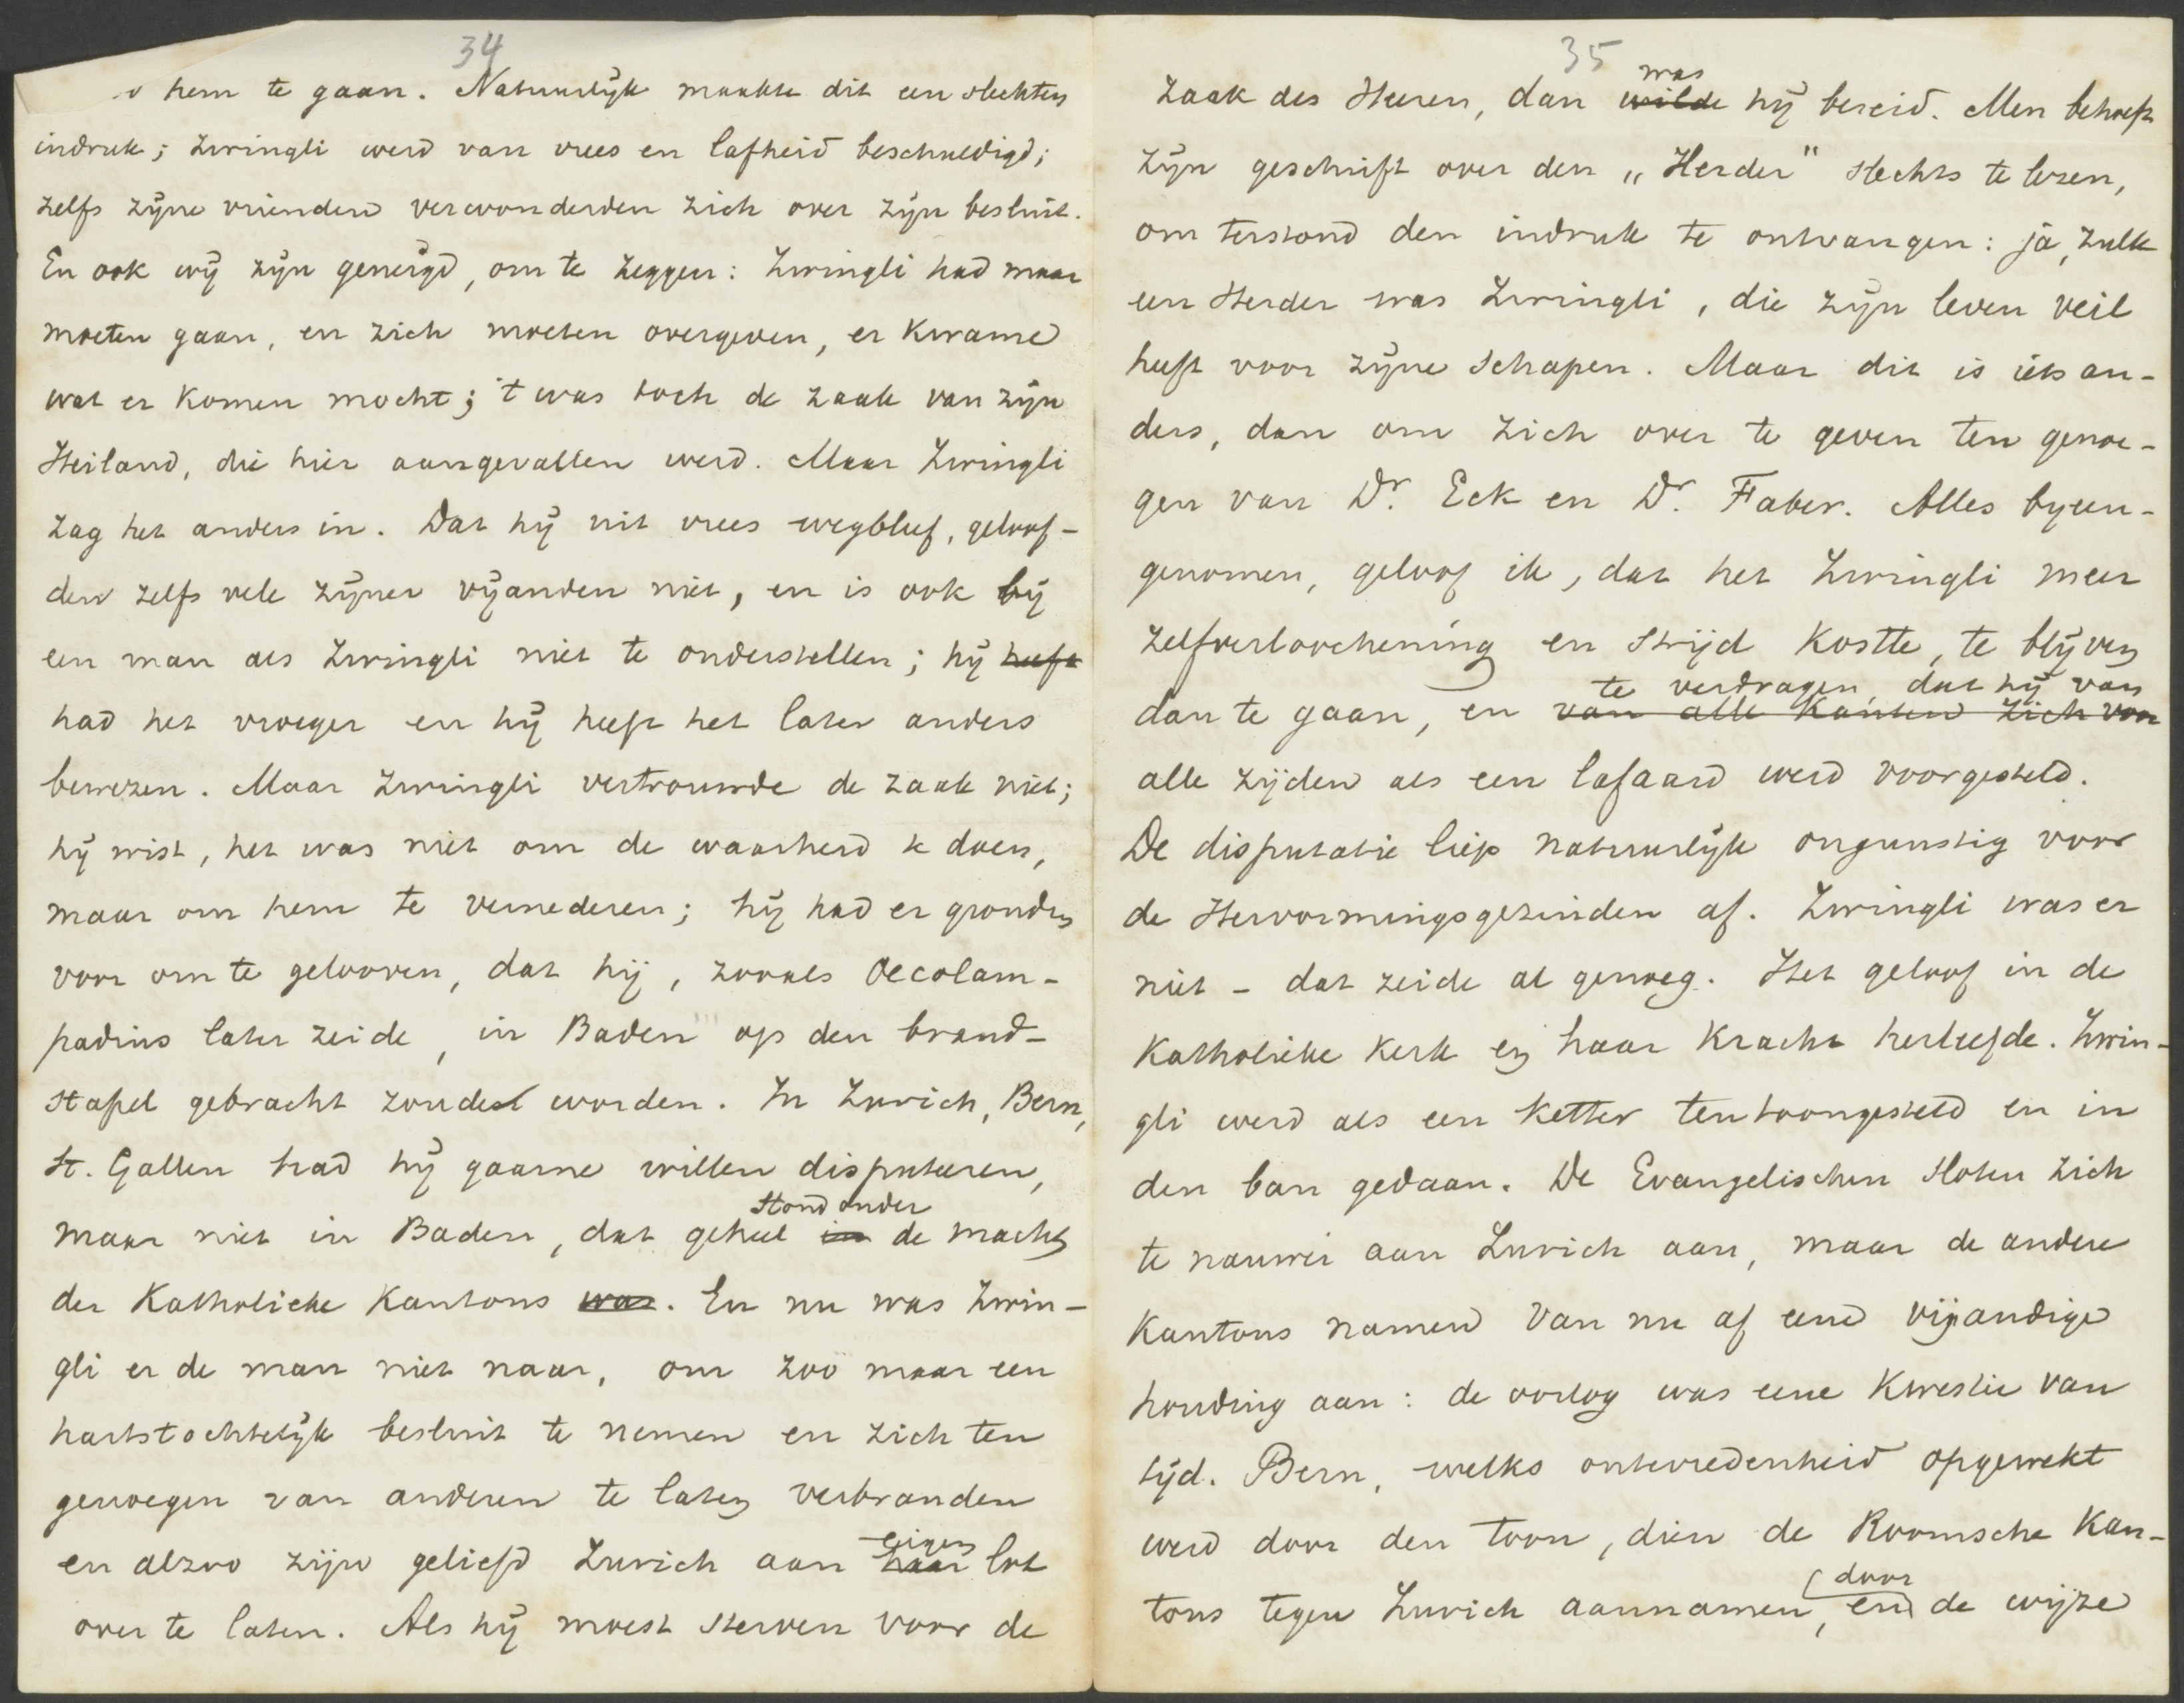 34
hem te gaan. Natuurlijk maakte dit een slechten
indruk; Zwingli werd van vrees en lafheid beschuldigd;
zelfs zijne vrienden verwonderden zich over zijn besluit.
En ook wij zijn geneigd, om te zeggen: Zwingli had maar
moeten gaan, en zich moeten overgeven, er kwame
wat er komen mocht; 't was toch de zaak van zijn
Heiland, die hier aangevallen werd. Maar Zwingli
zag het anders in. Dat hij uit vrees wegbleef, geloof-
den zelfs vele zijner vijanden niet, en is ook bij
een man als Zwingli niet te onderstellen; hij heeft
had het vroeger en hij heeft het later anders
bewezen. Maar Zwingli vertrouwde de zaak niet;
hij wist, het was niet om de waarheid te doen,
maar om hem te vernederen; hij had er gronden
voor om te gelooven, dat hij, zooals Oecolam-
padius later zeide, in Baden op den brand-
stapel gebracht zoude worden. In Zurich, Bern,
St. Gallen had hij gaarne willen disputeeren,
stond onder
maar niet in Baden, dat geheel in de macht
der Katholieke Kantons was. En nu was Zwin-
gli er de man niet naar, om zoo maar een
hartstochtelijk besluit te nemen en zich ten
genoegen van anderen te laten verbranden
eigen
en alzoo zijn geliefd Zurich aan haar lot
over te laten. Als hij moest sterven voor de
35
was
zaak des Heeren, dan wilde hij bereid. Men behoeft
zijn geschrift over den „Herder" slechts te lezen,
om terstond den indruk te ontvangen: ja, zulk
een Herder was Zwingli, die zijn leven veil
heeft voor zijne schapen. Maar dit is iets an-
ders, dan om zich over te geven ten genoe-
gen van Dr. Eck en Dr. Faber. Alles byeen-
genomen, geloof ik, dat het Zwingli meer
zelfverloochening en strijd kostte, te blijven
te verdragen, dat hij van
dan te gaan, en van alle kanten zich voor
alle zijden als een lafaard werd voorgesteld.
De disputatie liep natuurlijk ongunstig voor
de Hervormingsgezinden af. Zwingli was er
niet - dat zeide al genoeg. Het geloof in de
Katholieke Kerk en haar kracht herleefde. Zwin-
gli werd als een ketter tentoongesteld en in
den ban gedaan. De Evangelischen sloten zich
te nauwer aan Zurich aan, maar de andere
Kantons namen van nu af eene vijandige
houding aan: de oorlog was eene kwestie van
tijd. Bern, welks ontevredenheid opgewekt
werd door den toon, dien de Roomsche Kan-
door
tons tegen Zurich aannamen, en de wijze